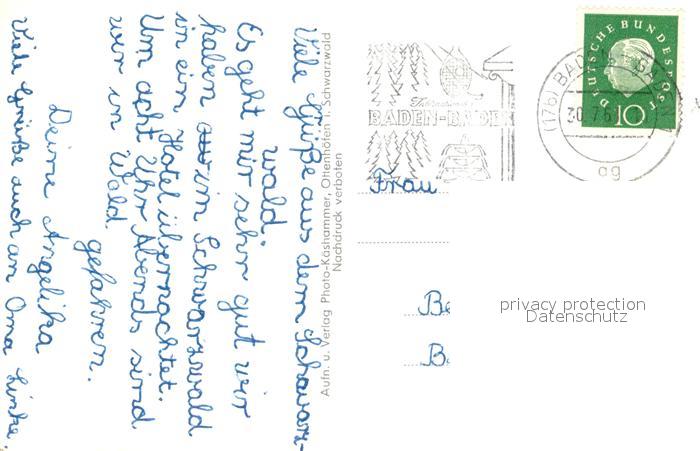 Viele Grüße aus dem Schwarz-
wald.
Es geht mir sehr gut wir
haben im Schwarzwald
in ein Hotel übernachtet.
Um acht Uhr Abends sind
wir in Wald
gefahren.
Deine Angelika
Viele Grüße auch an Oma Linke.
Aufn. u. Verlag Photo-Käshammer, Ottenhöfen i. Schwarzwald
Nachdruck verboten
BADEN-BADEN
DEUTSCHE BUNDESPOST
10
(17b) BADEN-BADEN
ag
Frau
privacy protection
Datenschutz